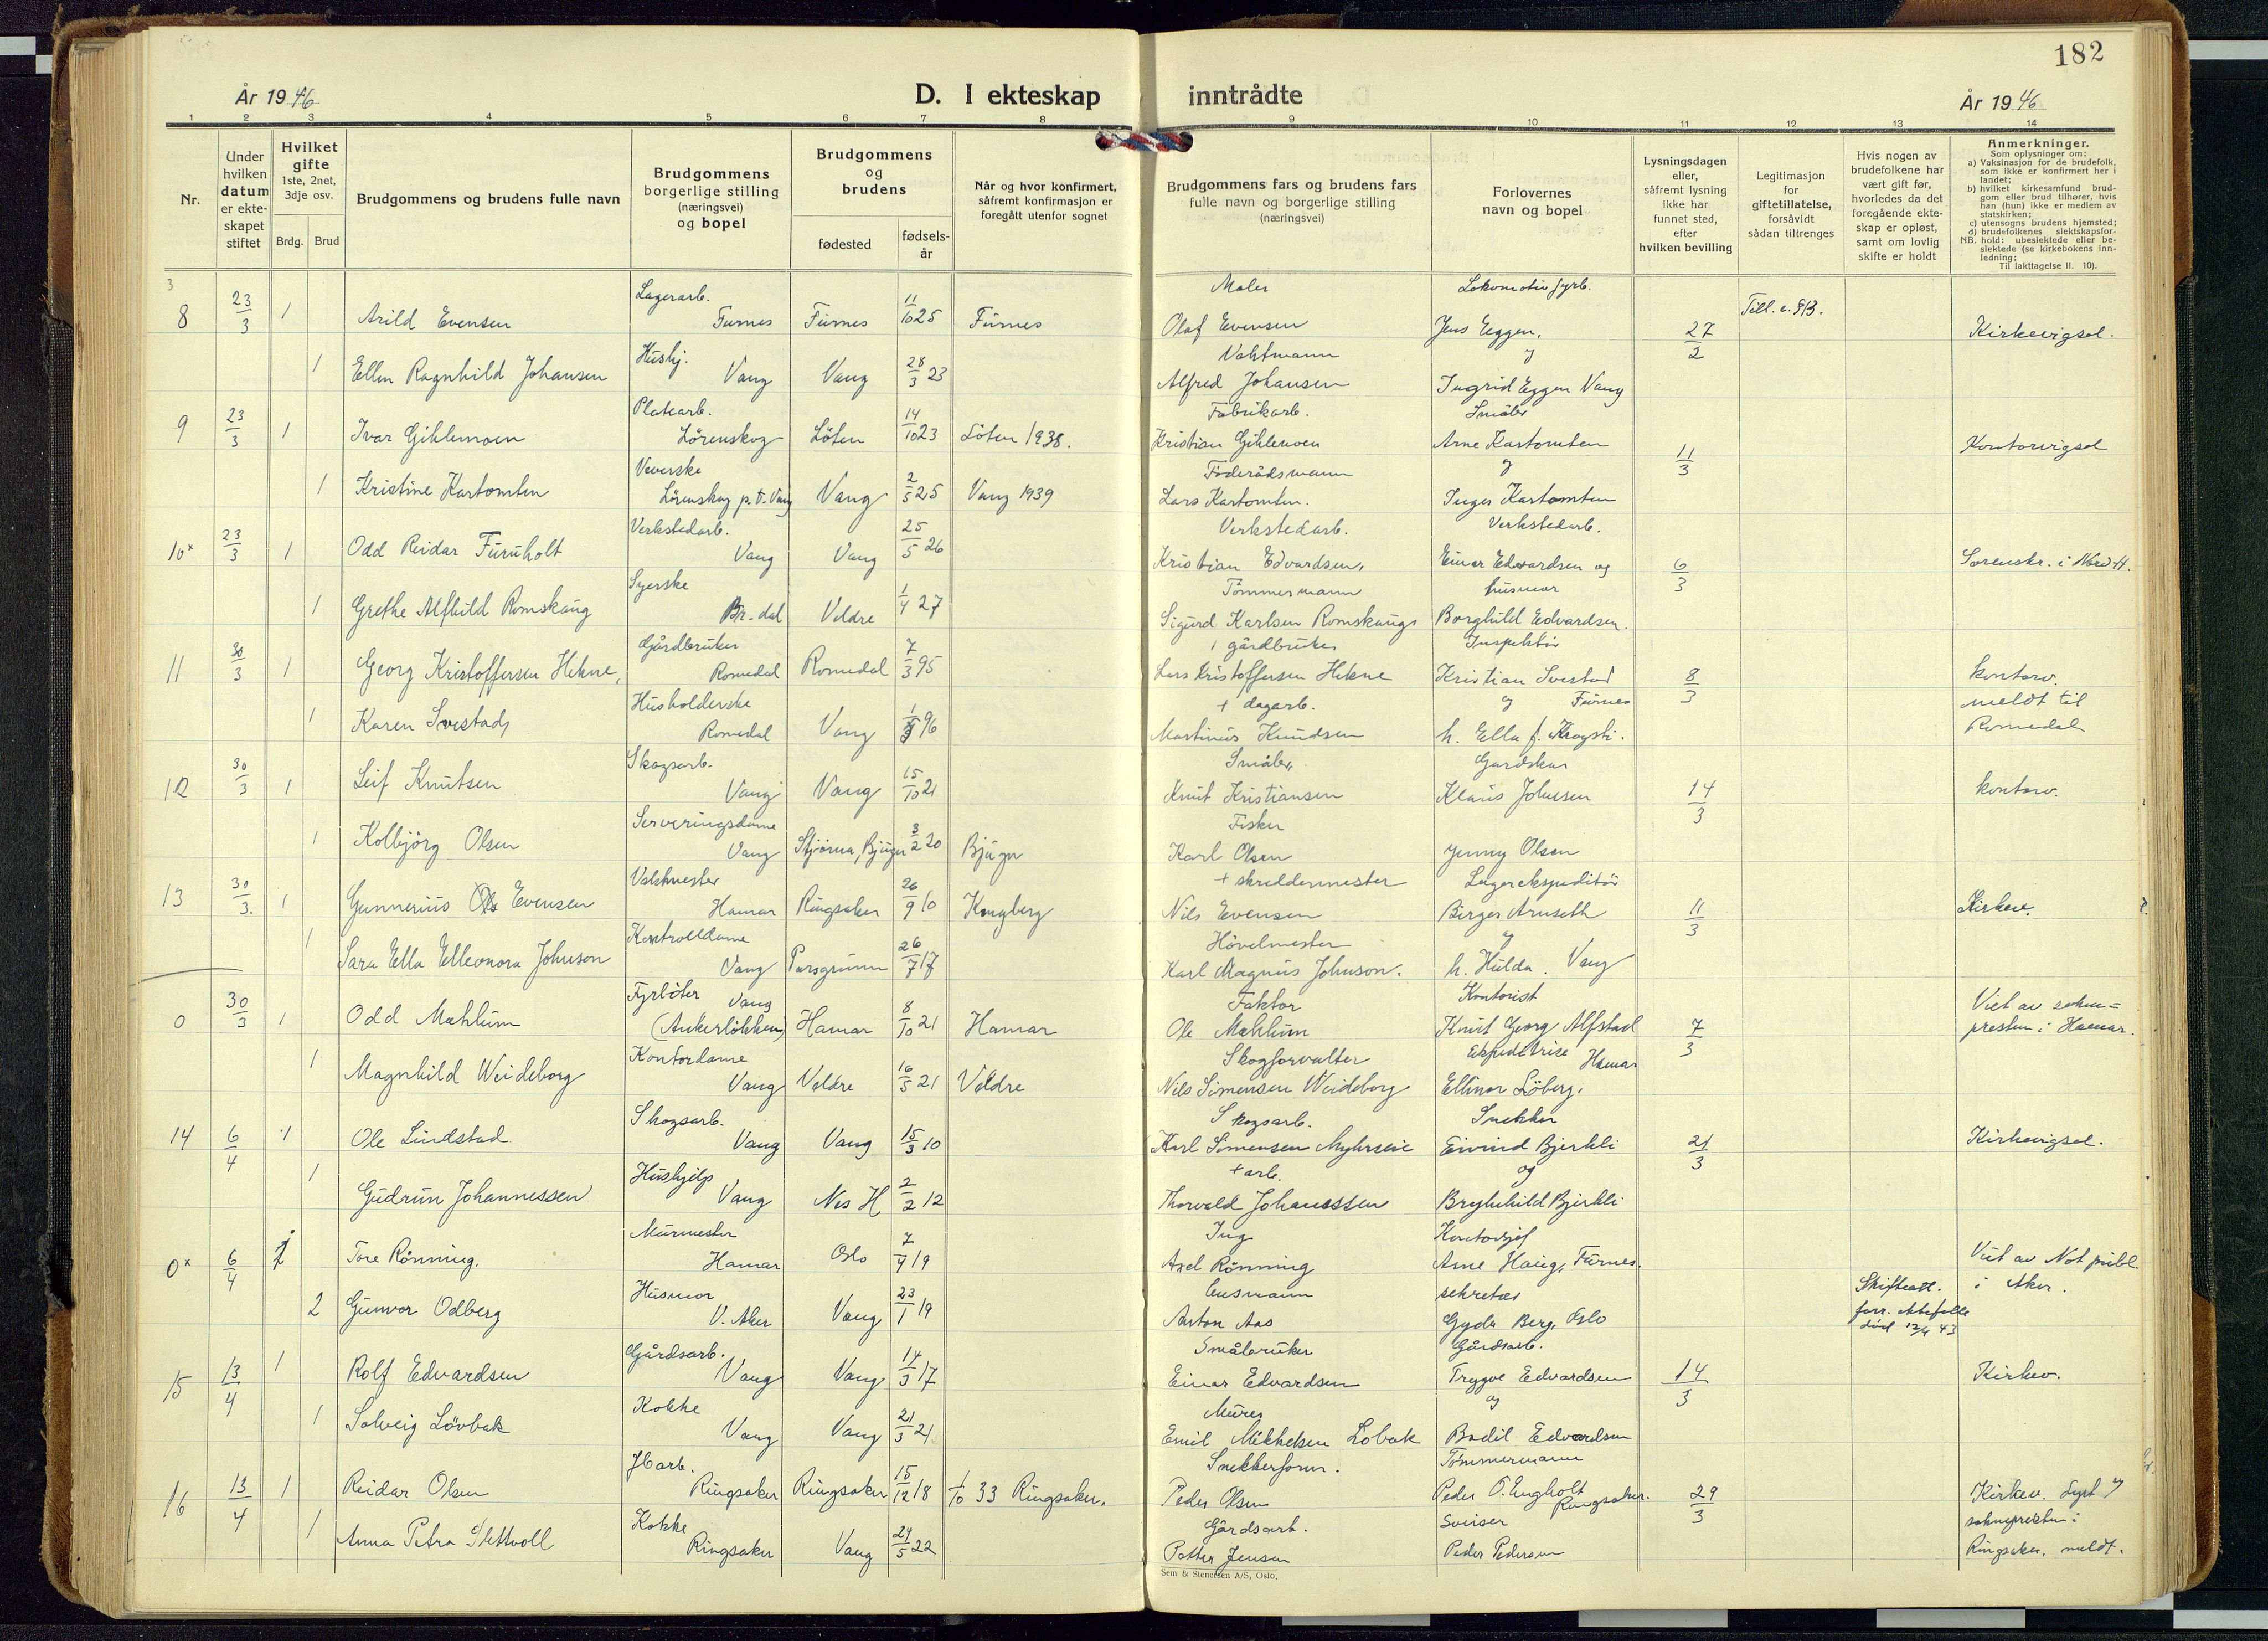 182
År 1946
D. I ekteskap inntrådte
År 1946
1 2 3 4 5 6 7 8 9 10 11 12 13 14
Nr.
Under hvilken datum er ekteskapet stiftet
Hvilket gifte 1ste, 2net, 3dje osv.
Brdg. Brud
Brudgommens og brudens fulle navn
Brudgommens borgerlige stilling (næringsvei) og bopel
Brudgommens og brudens
fødested
fødselsår
Når og hvor konfirmert, såfremt konfirmasjon er foregått utenfor sognet
Brudgommens fars og brudens fars fulle navn og borgerlige stilling (næringsvei)
Forlovernes navn og bopel
Lysningsdagen eller, såfremt lysning ikke har funnet sted, efter hvilken bevilling
Legitimasjon for giftetillatelse, forsåvidt sådan tiltrenges
Hvis nogen av brudefolkene har vært gift før, hvorledes da det foregående ekteskap er opløst, samt om lovlig skifte er holdt
Anmerkninger.
Som oplysninger om:
a) Vaksinasjon for de brudefolk, som ikke er konfirmert her i landet;
b) hvilket kirkesamfund brudgom eller brud tilhører, hvis han (hun) ikke er medlem av statskirken;
c) utensogns brudens hjemsted;
d) brudefolkenes slektskapsforhold: ubeslektede eller beslektede (se kirkebokens innledning;
NB.
Til iakttagelse II. 10).
3
Lagerarb. Maler Lokomotivfyrb.
8 23/3 1 Arild Evensen Furnes Furnes 11/10 25 Furnes Olaf Evensen Jens Eggen, 27/2 Till. e. §13. Kirkevigsel.
Hushj. Vaktmann og
1 Ellen Ragnhild Johansen Vang Vang 28/3 23 Alfred Johansen Ingrid Eggen Vang
Platearb. Fabrikarb. Småbr
9 23/3 1 Ivar Gihlemoen Lörenskog Löten 14/10 23 Löten 1938. Kristian Gihlemoen Arne Kartomten 11/3 Kontorvigsel
Veverske Föderådsmann og
1 Kristine Kartomten Lörenskog p.t. Vang Vang 2/5 25 Vang 1939 Lars Kartomten. Inger Kartomten
Verkstedarb. Verkstedarb. Verkstedarb.
10x 23/3 1 Odd Reidar Furuholt Vang Vang 25/5 26 Kristian Edvardsen, Einar Edvardsen og 6/3 Sorenskr. i Nord-H.
Syerske Tömmermann husmor
1 Grethe Alfhild Romskaug Br-dal Veldre 1/4 27 Sigurd Karlsen Romskaugs Borghild Edvardsen.
Gårdbruker gårdbruker Inspektör
11 30/3 1 Georg Kristoffersen Hekne, Romedal Romedal 7/3 95 Lars Kristoffersen Hekne Kristian Svestad 8/3 kontorv.
Husholderske + dagarb. og Furnes meldt til
1 Karen Svestad Romedal Vang 96 Martinus Knudsen h. Ella f. Krogsti. Romedal
Skogsarb. Småbr. Gardskar
12 30/3 1 Leif Knutsen Vang Vang 15/10 21 Knut Kristiansen Klaus Johnsen 14/3 kontorv.
Serveringsdame Fisker
1 Kolbjörg Olsen Vang Stjörna, Bjugn 3/2 20 Bjugn Karl Olsen Jenny Olsen
Vaktmester + skreddermester Lagerekspeditör
13 30/3. 1 Gunnerius Evensen Hamar Ringsaker 26/9 10 Kongberg Nils Evensen Birger Aruseth 11/3 Kirkev.
Kontrolldame Hövelmester og
1 Sara Ella Elleonora Johnson Vang Porsgrunn 26/7 17 Karl Magnus Johnson. h. Hulda. Vang
Fyrböter Vang Faktor Kontorist Viet av sokne-
0 30/3 1 Odd Mæhlum (Ankerlökken) Hamar 8/10 21 Hamar Ole Mæhlum Knut Georg Alfstad 7/3 presten i Hamar.
Kontordame Skogforvalter Ekspeditrise Hamar
1 Magnhild Weideborg Vang Veldre 16/5 21 Veldre Nils Simensen Weideborg Ellinor Löberg.
Skogsarb. Skogsarb. Snekker
14 6/4 1 Ole Lindstad Vang Vang 15/3 10 Karl Simensen Myhrseie Eivind Bjerkli 21/3 Kirkevigsel.
Hushjelp + arb. og
1 Gudrun Johannessen Vang Nes H 2/2 12 Thorvald Johanessen Brynhild Bjerkli
Murmester Ing Kontorsjef
0x 6/4 1 Tore Rönning. Hamar Oslo 7/4 19 Axel Rönning Arne Haug, Furnes. Viet av Not publ.
Husmor sekretær Skifteatt. i Aker.
2 Gunvor Odberg V. Aker Vang 23/1 19 Anton Aas Gyda Berg, Oslo forr. ektefelle död 12/4 43
Gårdsarb. Småbruker Gårdsarb.
15 13/4 1 Rolf Edvardsen Vang Vang 14/3 17 Einar Edvardsen Trygve Edvardsen 14/3 Kirkev.
Kokke Murer og
1 Solveig Lövbak Vang Vang 21/3 21 Emil Mikkelsen Lobak Bodil Edvardsen
Jbarb. Snekkerform. Tömmermann
16 13/4 1 Reidar Olsen Ringsaker Ringsaker 15/12 18 1/10 33 Ringsaker. Peder Olsen Peder O. Engholt Ringsaker. 29/3 Kirkev. Lyst og
Kokke Gårdsarb. Sveiser sokneprestn i
1 Anna Petra Slettvoll Ringsaker Vang 24/5 22 Petter Jensen Peder Pedersen Ringsaker, meldt.
Sem & Stenersen A/S, Oslo.